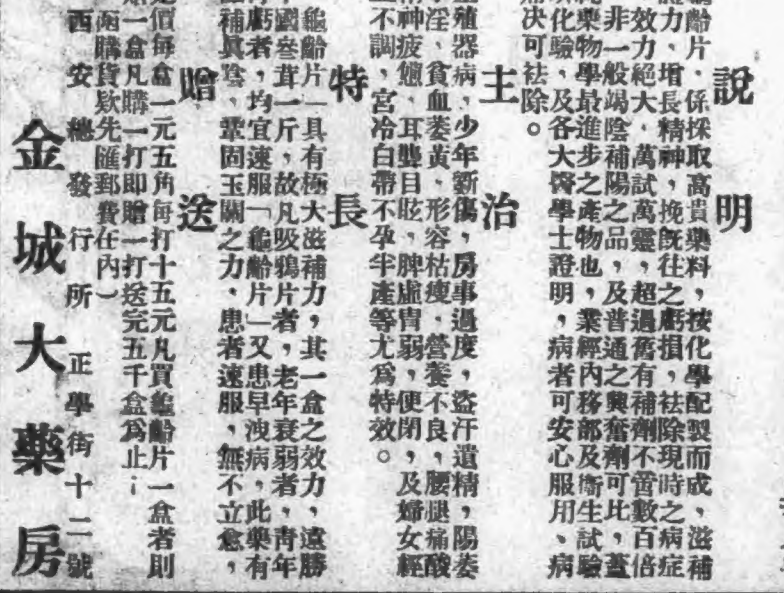 說明
齡片、係採取高貴藥料,按化學配製而成,滋補
體力,增長精神,挽旣往之虧損,祛除現時之病症
效力絕大,萬試萬靈,超過舊有補劑不啻數百倍
非一般竭陰補陽之品,及普通之興奮劑可比,蓋
藥物學最進步之產物也,業經內務部及衞生試驗
化驗,及各大醫學士證明,病者可安心服用、病
決可祛除。
主治
殖器病、少年斵傷,房事過度,盜汗遺精,陽萎
淫、貧血萎黃,形容枯瘦,營養不良,腰腿痛酸
神疲憊,耳聾目眩,脾虛胃弱,便閉,及婦女經
不調,宮冷白帶不孕半產等尤爲特效。
特長
龜齡片」具有極大滋補力,其一盒之效力,遠勝
國參茸一斤,故凡吸鴉片者,老年衰弱者,靑年
虧者,均宜速服「龜齡片」又患早洩病,此藥有
補眞陰,鞏固玉關之力,患者速服,無不立愈,
贈送
價每盒一元五角每打十五元凡買龜齡片一盒者則
一盒凡購一打即贈一打送完五千盒爲止;
函購貨欵先匯郵費在內)
西安總發行所 正學街十二號
金城大藥房